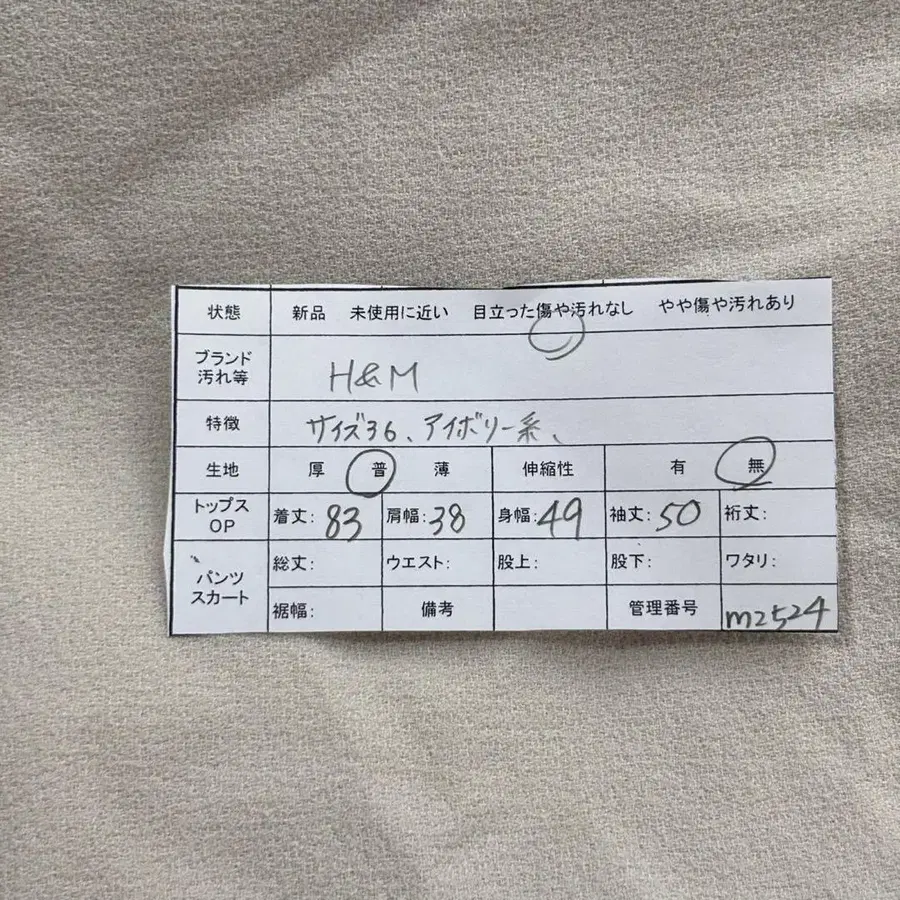 状態 新品 未使用に近い 目立った傷や汚れなし やや傷や汚れあり
ブランド
汚れ等 H&M
特徴 サイズ36、アイボリー系、
生地 厚 普 薄 伸縮性 有 無
トップス
OP 着丈:83 肩幅:38 身幅:49 袖丈:50 裄丈:
パンツ
スカート 総丈: ウエスト: 股上: 股下: ワタリ:
裾幅: 備考 管理番号 m2524